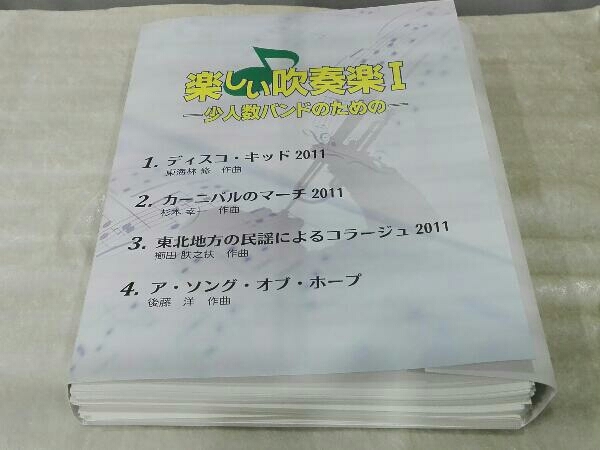 楽しい吹奏楽Ⅰ
―少人数バンドのための―
1. ディスコ・キッド 2011
東海林 修 作曲
2. カーニバルのマーチ 2011
杉本 幸一 作曲
3. 東北地方の民謡によるコラージュ 2011
櫛田 胅之扶 作曲
4. ア・ソング・オブ・ホープ
後藤 洋 作曲